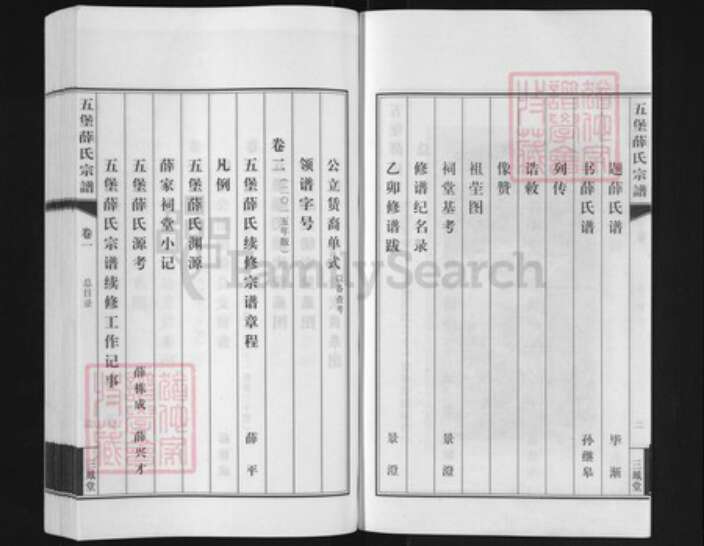 五堡薛氏宗譜
三鳳堂
题薛氏谱 毕渐
书薛氏谱 孙继皋
列传
诰敕
像赞
祖茔图
祠堂基考 景澄
修谱纪名录
乙卯修谱跋 景澄
公立赁裔单式 以备查考
领谱字号
卷二(二〇一五年版)
五堡薛氏续修宗谱章程 薛平
凡例
五堡薛氏渊源
薛家祠堂小记
五堡薛氏源考 薛栋成 薛兴才
五堡薛氏宗谱续修工作记事
五堡薛氏宗譜 卷一 总目录 三鳳堂
FamilySearch